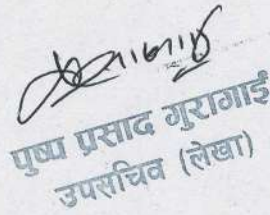 पुष्प प्रसाद गुरागाई
उपसचिव (लेखा)